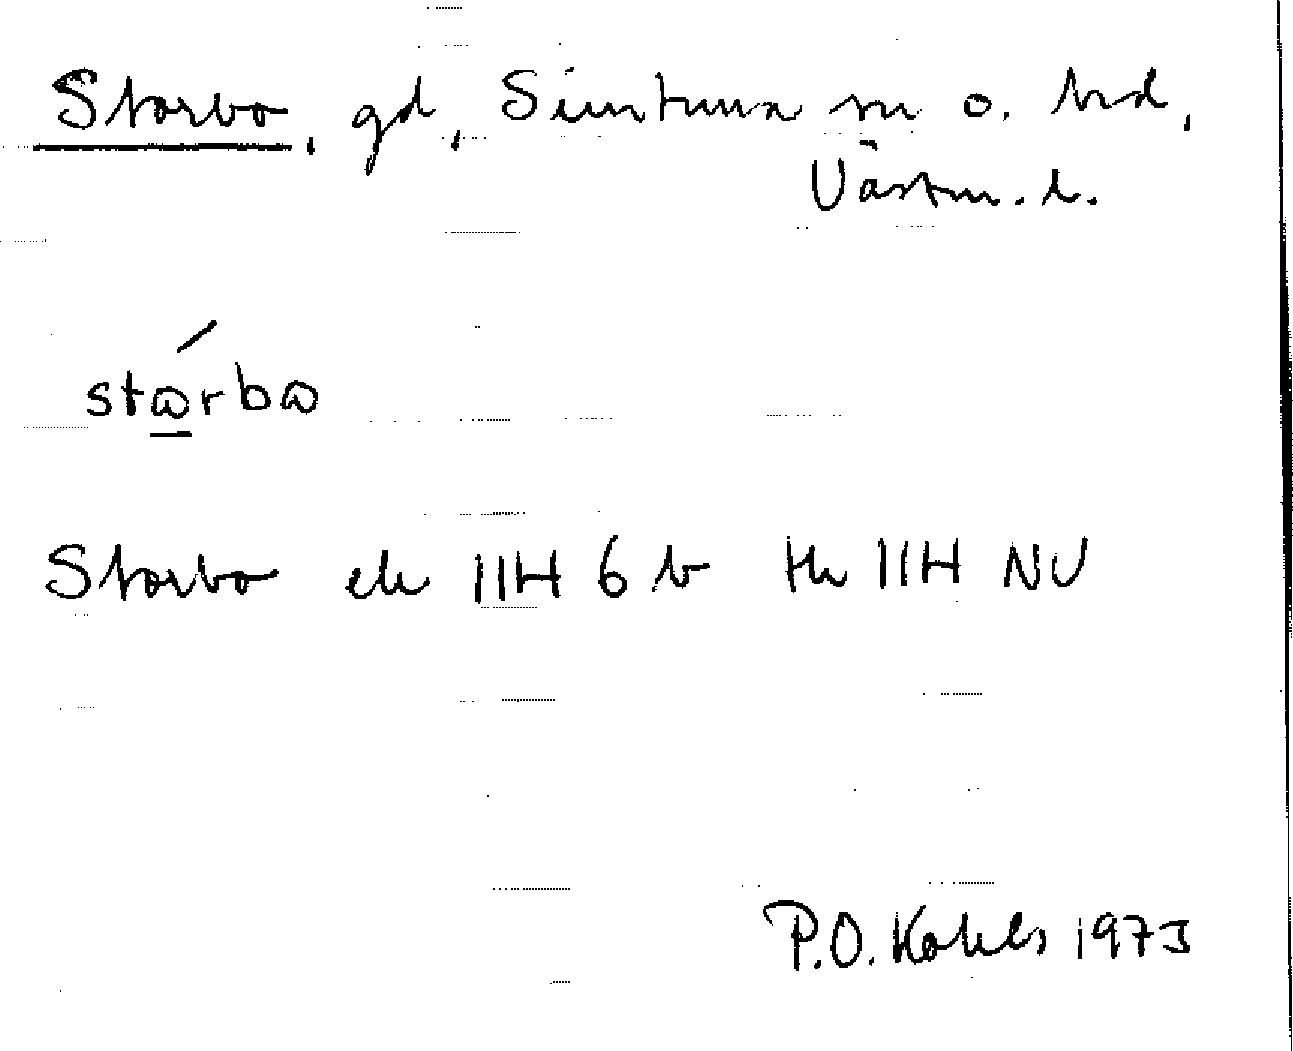 Storbo, gd, Simtuna sn o. hd,
Västm. l.
stɷ́rbɷ
Storbo ek 11H 6 b tk 11H NV
P.O. Kohls 1973